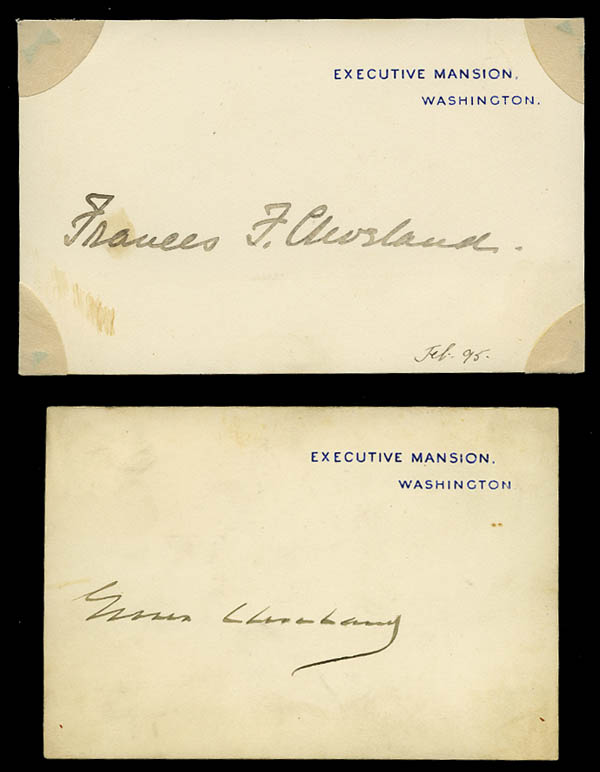 EXECUTIVE MANSION,
WASHINGTON.
Frances F. Cleveland.
Feb. 95.
EXECUTIVE MANSION.
WASHINGTON
Grover Cleveland